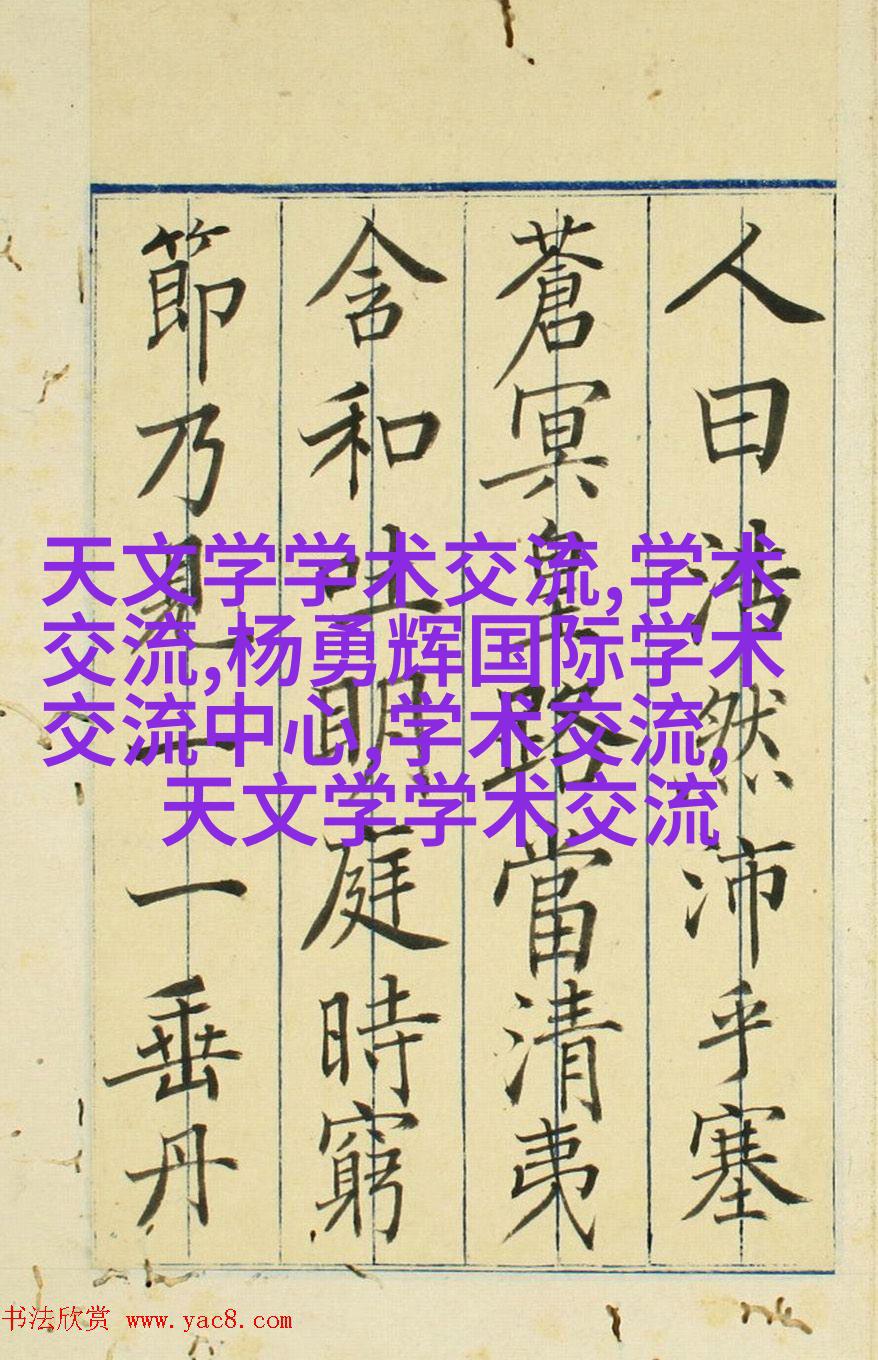 人曰浩然沛乎塞
蒼冥皇路當清夷
含和吐明庭時窮
節乃見一一垂丹
天文学学术交流,学术
交流,杨勇辉国际学术
交流中心,学术交流,
天文学学术交流
书法欣赏 www.yac8.com